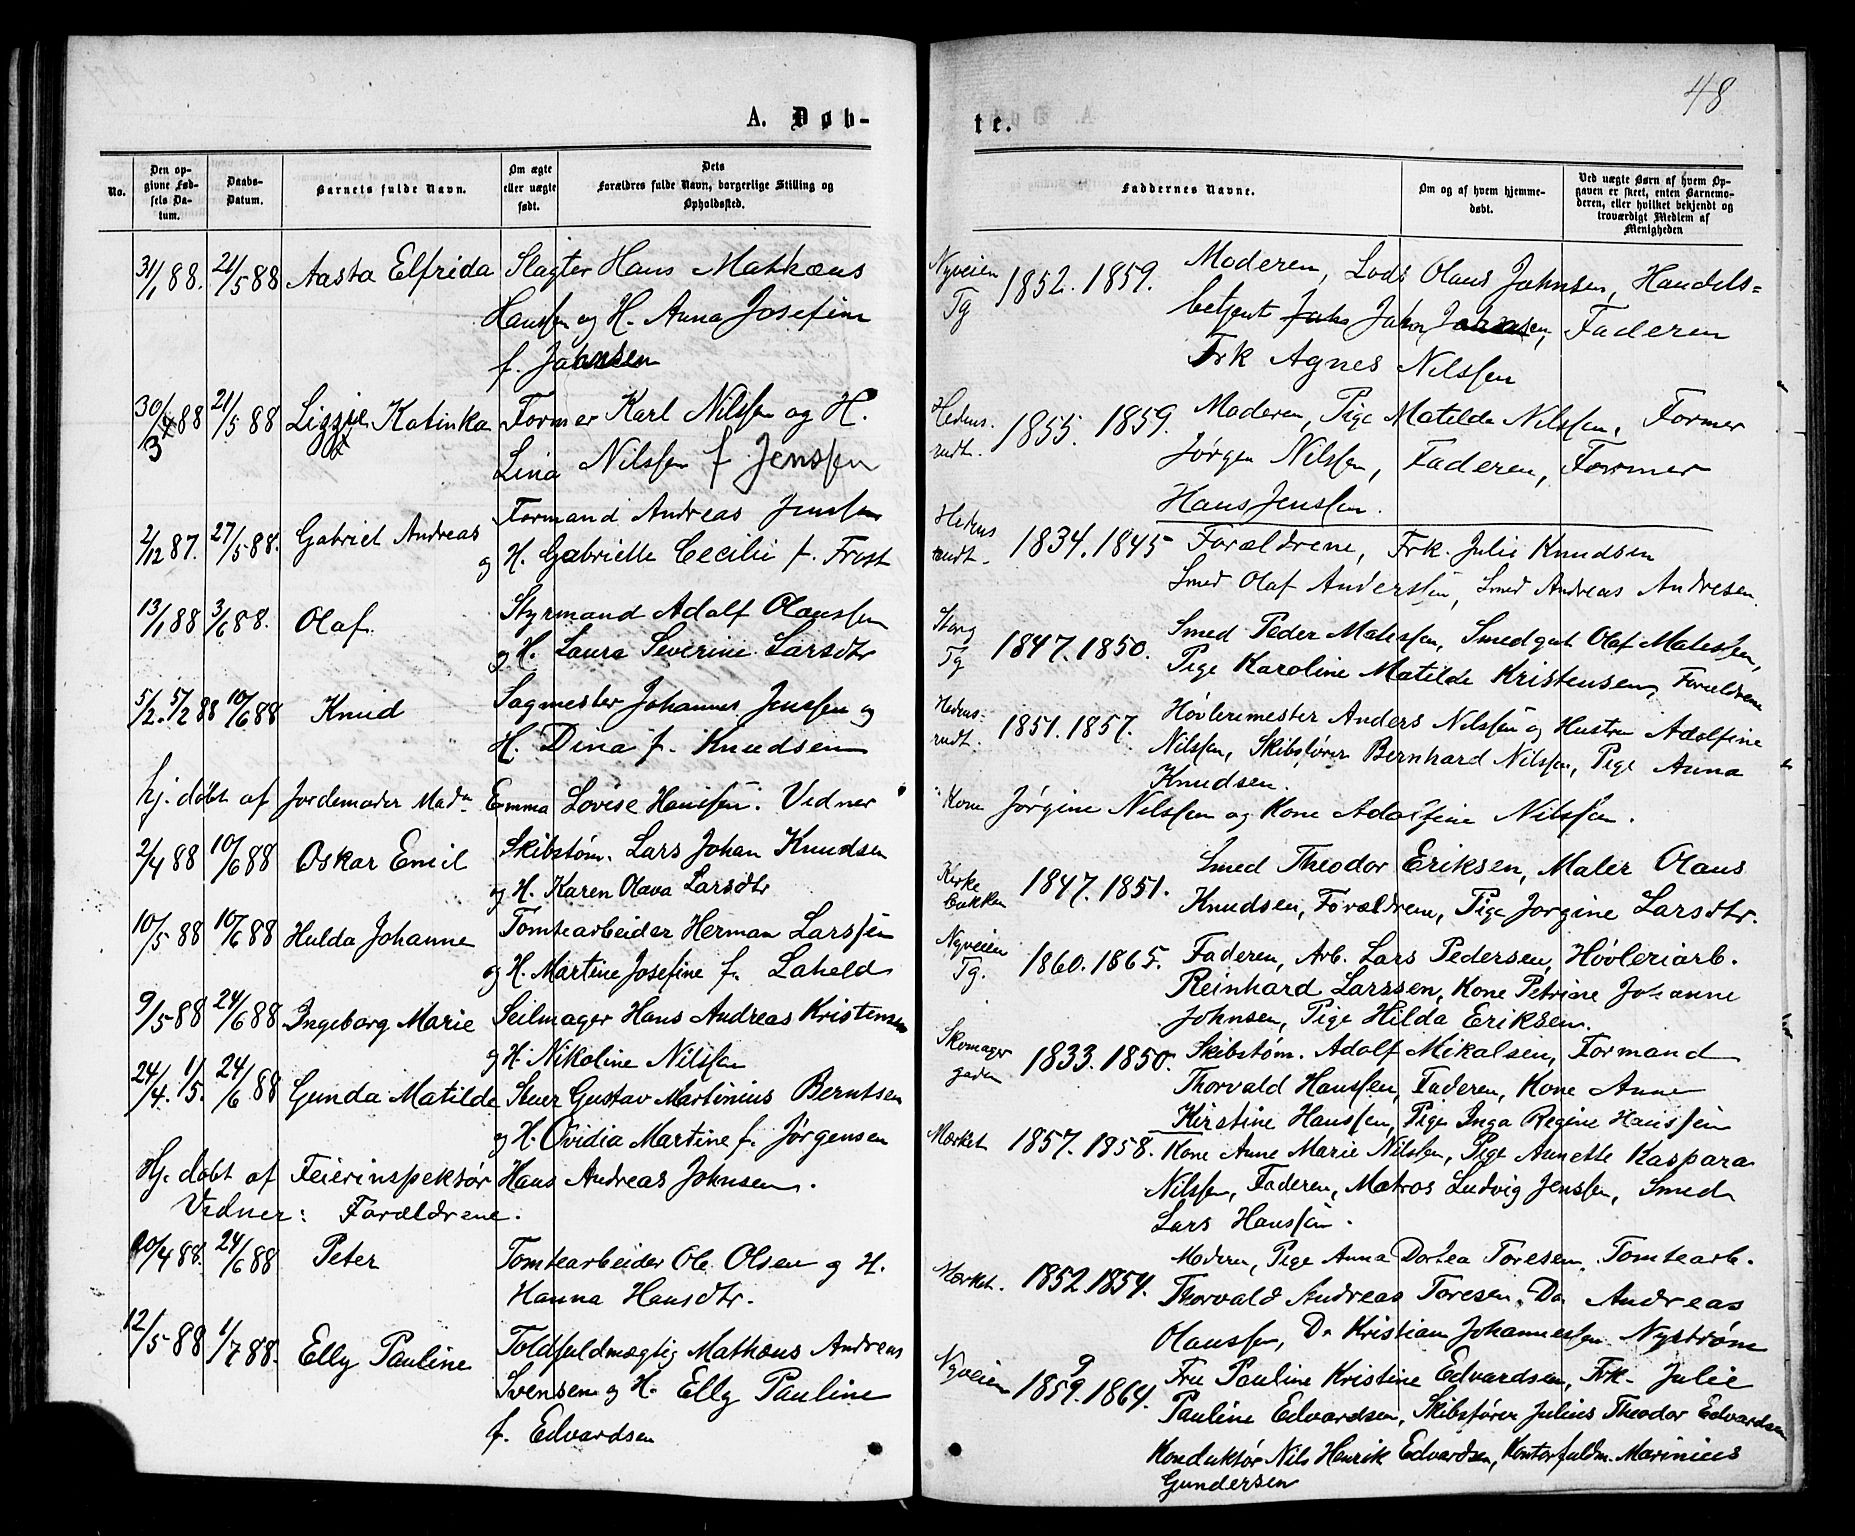 48
A. Døb-
te.
No.
Den op-
givne Fød-
sels Da-
tum.
Daabs-
Datum.
Barnets fulde Navn.
Om ægte
eller uægte
født.
Dets
Forældres fulde Navn, borgerlige Stilling og
Opholdssted.
Faddernes Navne.
Om og af hvem hjemme-
døbt.
Ved uægte Børn af hvem Op-
gaven er skeet, enten Barnemo-
deren, eller hvilket bekjendt og
troværdigt Medlem af
Menigheden
31/1 88. 21/5 88 Aasta Elfrida Slagter Hans Mathæus
Hanssen og H. Anna Josefine
f. Johnsen
Nyveien
Tg 1852. 1859. Moderen, Lods Olaus Johnsen, Handels-
betjent Johan Johnsen, Faderen
Frk Agnes Nilssen
30/3 88 21/5 88 Lizzie Katinka Former Karl Nilssen og H.
Lina Nilssen f. Jenssen
Hedens-
rudt. 1855. 1859. Moderen, Pige Matilda Nilssen, Former
Jørgen Nilssen, Faderen, Former
Hans Jenssen.
2/12 87. 27/5 88. Gabriel Andreas Formand Andreas Jenssen
og H. Gabrielle Cecilie f. Frost
Hedens
rudt. 1834. 1845 Forældrene, Frk. Julie Knudsen
Smed Olaf Anderssen, Smed Andreas Andresen.
13/1 88 3/6 88. Olaf Styrmand Adolf Olaussen
og H. Laura Severine Larsdtr
Storg
Tg 1847. 1850. Smed Peder Matissen, Smedgut Olaf Matissen,
Pige Karoline Matilde Kristensen, Forældrene
5/2. 5/2 88 10/6 88 Knud Sagmester Johannes Jenssen og
H. Dina f. Knudsen
Hedens-
rudt. 1851. 1857. Høvlerimester Anders Nilssen og Hustru Adolfine
Nilssen, Skibsfører Bernhard Nilssen, Pige Anna
Knudsen.
hj. døbt af Jordemoder Mad. Emma Lovise Hanssen. Vidner:
Kone Jørgine Nilssen og Kone Adolfine Nilssen.
2/4 88 10/6 88 Oskar Emil Skibstøm. Lars Johan Knudsen
og H. Karen Olava Larsdtr
Kirke
bakken 1847. 1851. Smed Theodor Eriksen, Maler Olaus
Knudsen, Forældrene, Pige Jorgine Larsdtr.
10/5 88 10/6 88 Hulda Johanne Tomtearbeider Herman Larssen
og H. Martine Josefine f. Laheld
Nyveien
Tg. 1860. 1865. Faderen, Arb. Lars Pedersen, Høvleriarb.
Reinhard Larssen, Kone Petrine Johanne
Johnsen, Pige Hilda Eriksen.
9/5 88 24/6 88 Ingeborg Marie Seilmager Hans Andreas Kristensen
og H. Nikoline Nilssen
Skomager
gaden 1833. 1850. Skibstøm. Adolf Mikalsen, Formand
Thorvald Hanssen, Faderen, Kone Anne
Kirstine Hanssen, Pige Inga Regine Hanssen
24/4. 1/5. 24/6 88 Gunda Matilde Stuer Gustav Martinius Berntsen
og H. Ovidia Martine f. Jørgensen
Mærket 1857. 1858. Kone Anne Marie Nilssen, Pige Annette Kaspara
Nilssen, Faderen, Matros Ludvig Jenssen, Smed
Lars Hanssen.
Hj. døbt af Feierinspektør Hans Andreas Johnsen.
Vidner: Forældrene.
20/4 88. 24/6 88 Peter Tomtearbeider Ole Olsen og H.
Hanna Hansdtr.
Mærket. 1852 1854. Moderen, Pige Anna Dortea Toresen, Tomtearb.
Thorvald Andreas Toresen, Do Andreas
Olaussen, Do Kristian Johannessen Nystrøm
12/5 88 1/7 88. Elly Pauline Toldfuldmægtig Mathæus Andreas
Svensen og H. Elly Pauline
f. Edvardsen
Nyveien 1859. 1864. Fru Pauline Kristine Edvardsen, Frk. Julie
Pauline Edvardsen, Skibsfører Julius Theodor Edvardsen
Konduktør Nils Henrik Edvardsen, Kontorfuldm. Marinius
Gundersen